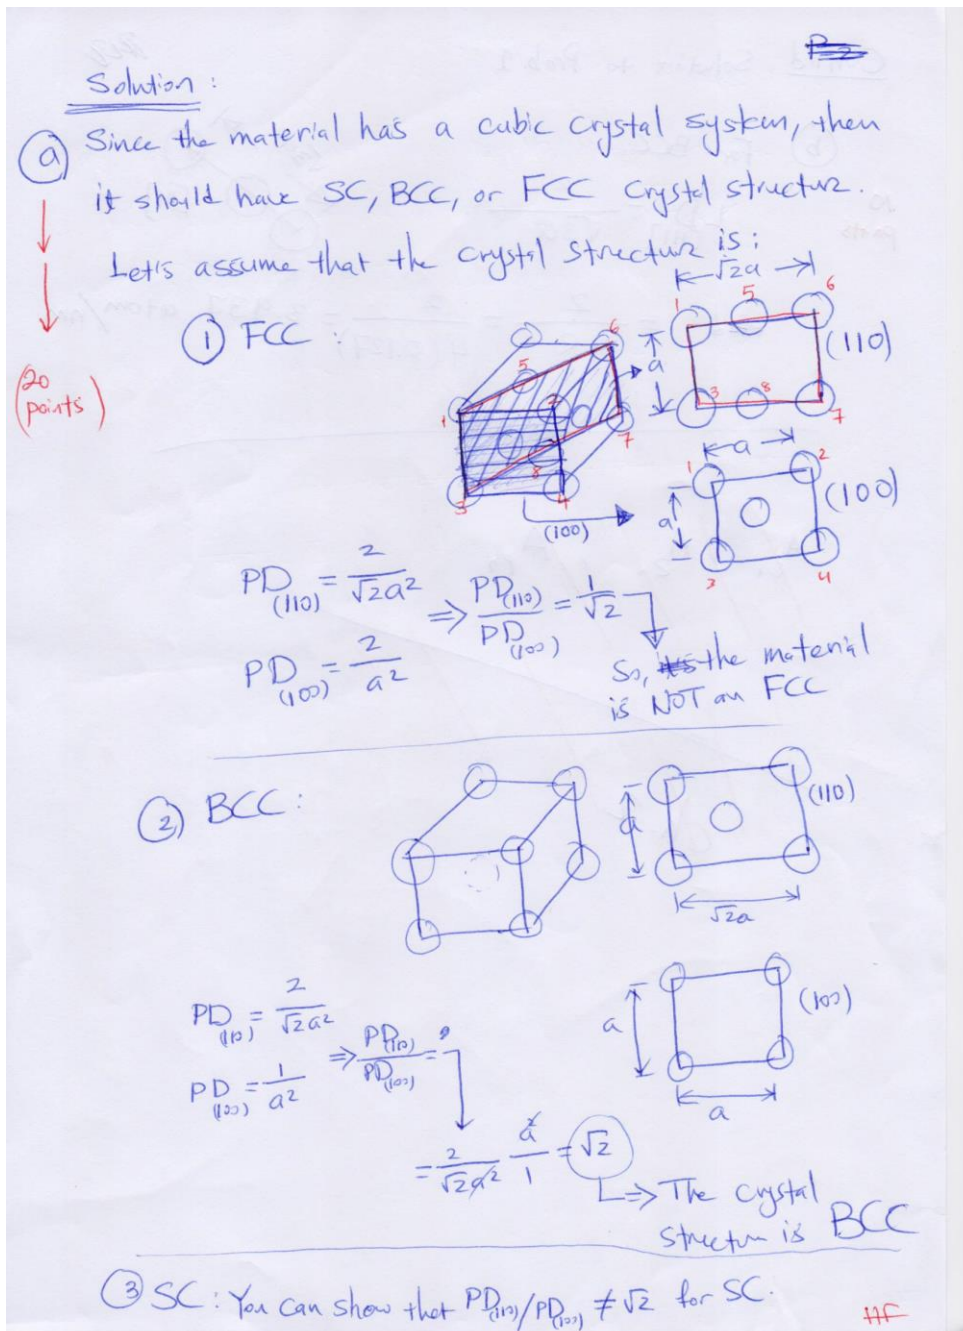 Solution:
(a) Since the material has a cubic crystal system, then
it should have SC, BCC, or FCC crystal structure.
Let's assume that the crystal structure is:
(20 points)
① FCC:
√2a
1 5 6
3 8 7
a
(110)
1 2 3 4 5 6 7 8
(100)
a
1 2
a
3 4
(100)
PD(110) = 2/√2a²
PD(100) = 2/a²
⇒ PD(110)/PD(100) = 1/√2
So, the material
is NOT an FCC
② BCC:
a
(110)
√2a
a
(100)
a
PD(110) = 2/√2a²
PD(100) = 1/a²
⇒ PD(110)/PD(100) =
= 2/√2a² a²/1 = √2
⇒ The crystal
structure is BCC
③ SC: You can show that PD(110)/PD(100) ≠ √2 for SC.
HF